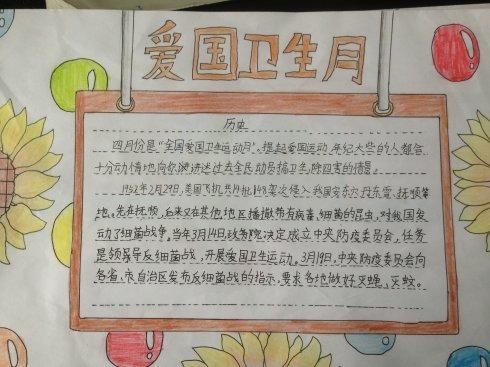 爱国卫生月
历史
四月份是“全国爱国卫生运动月”,提起爱国运动,年纪大些的人都会
十分动情地向你演讲述过去全民动员搞卫生,除四害的情景。
1952年2月29日,美国飞机共14批148架次侵入我国安东、丹东、抚顺等
地,先在抚顺,后来又在其他地区播撒带有病毒、细菌的昆虫,对我国发
动了细菌战争。当年3月14日政务院决定成立中央防疫委员会,任务
是领导反细菌战,开展爱国卫生运动。3月19日,中央防疫委员会向
各省、市、自治区发布反细菌战的指示,要求各地做好灭蝇、灭蚊。